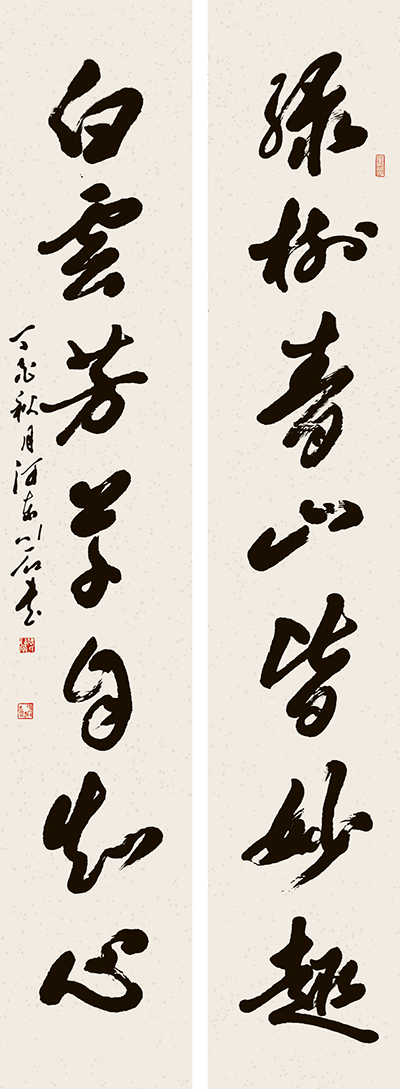 绿树青山皆妙趣
白雲芳草自知心
秋月河东川石书